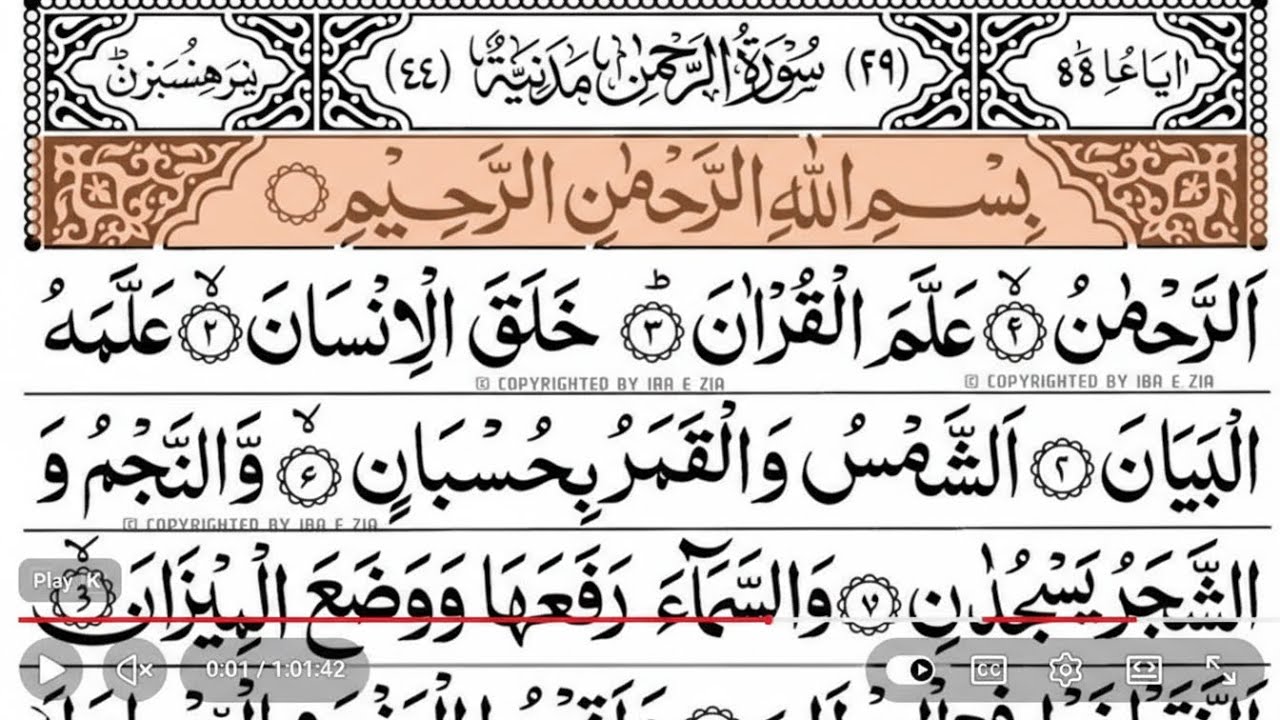 اٰیَاتُهَا ۴۴ (۲۹) سُوْرَةُ الرَّحْمٰنِ مَدَنِيَّةٌ (٤٤)
بِسْمِ اللّٰهِ الرَّحْمٰنِ الرَّحِيْمِ
اَلرَّحْمٰنُ ۴ عَلَّمَ الْقُرْاٰنَ ۳ خَلَقَ الْاِنْسَانَ ۲ عَلَّمَهُ
© COPYRIGHTED BY IBA E ZIA © COPYRIGHTED BY IBA E. ZIA
الْبَيَانَ ۲ اَلشَّمْسُ وَالْقَمَرُ بِحُسْبَانٍ ۶ وَّالنَّجْمُ وَ
© COPYRIGHTED BY IBA E ZIA
الشَّجَرُ يَسْجُدٰنِ ۷ وَالسَّمَآءَ رَفَعَهَا وَوَضَعَ الْمِيْزَانَ
Play K
0:01 / 1:01:42
CC